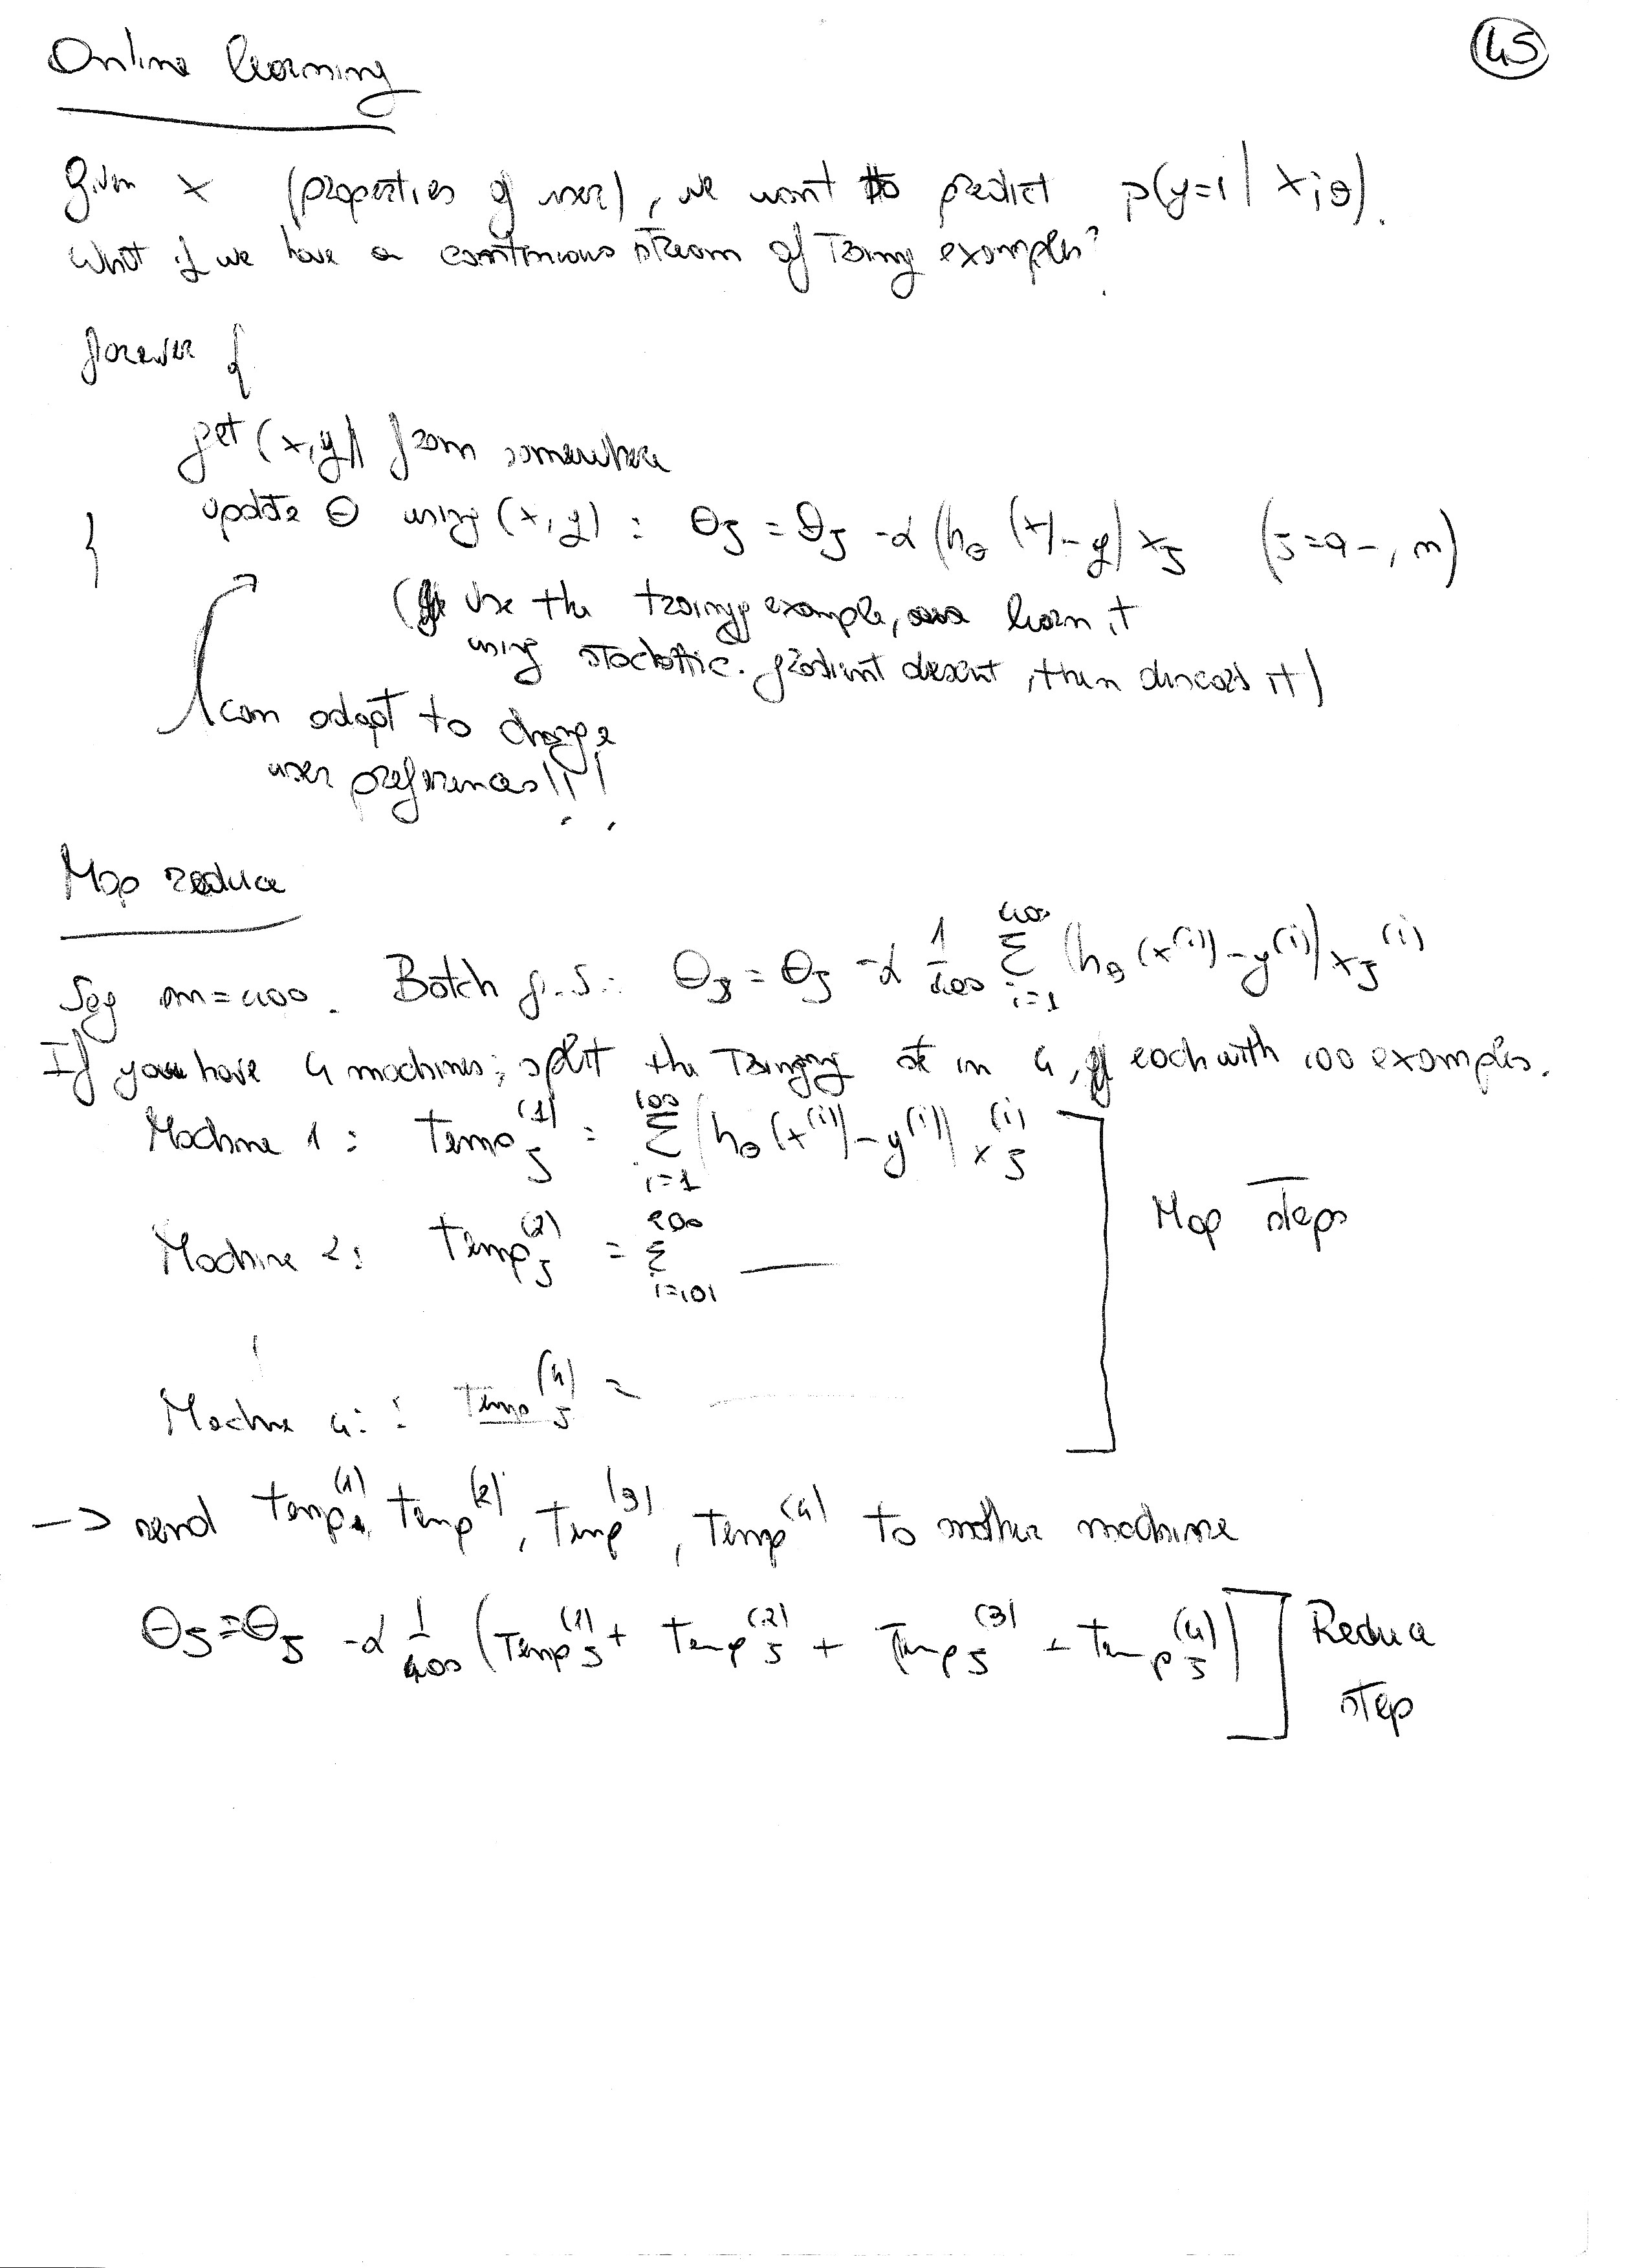 45
Online learning
Given x (properties of user), we want to predict p(y=1 | x;θ).
What if we have a continuous stream of traing examples?
forever {
get (x,y) from somewhere
update θ using (x,y) : θj = θj -α (hθ (x) - y) xj (j=0 -, n)
}
(Use the traing example, learn it
using stochastic. gradient descent, then discard it)
can adapt to change
user preferences!!!
Map reduce
Say m=400. Batch g.d.: θj = θj -α 1/400 Σ i=1 400 (hθ (x(i)) - y(i)) xj(i)
If you have 4 machines; split the set in 4, each with 100 examples.
Machine 1 : Tempj(1) = Σ i=1 100 (hθ (x(i)) - y(i)) xj(i)
Machine 2 : Tempj(2) = Σ i=101 200 ——
Map steps
Machine 4 : : Tempj(4) =
-> send Temp(1), Temp(2), Temp(3), Temp(4) to another machine
θj = θj -α 1/400 (Tempj(1) + Tempj(2) + Tempj(3) + Tempj(4)) Reduce
step